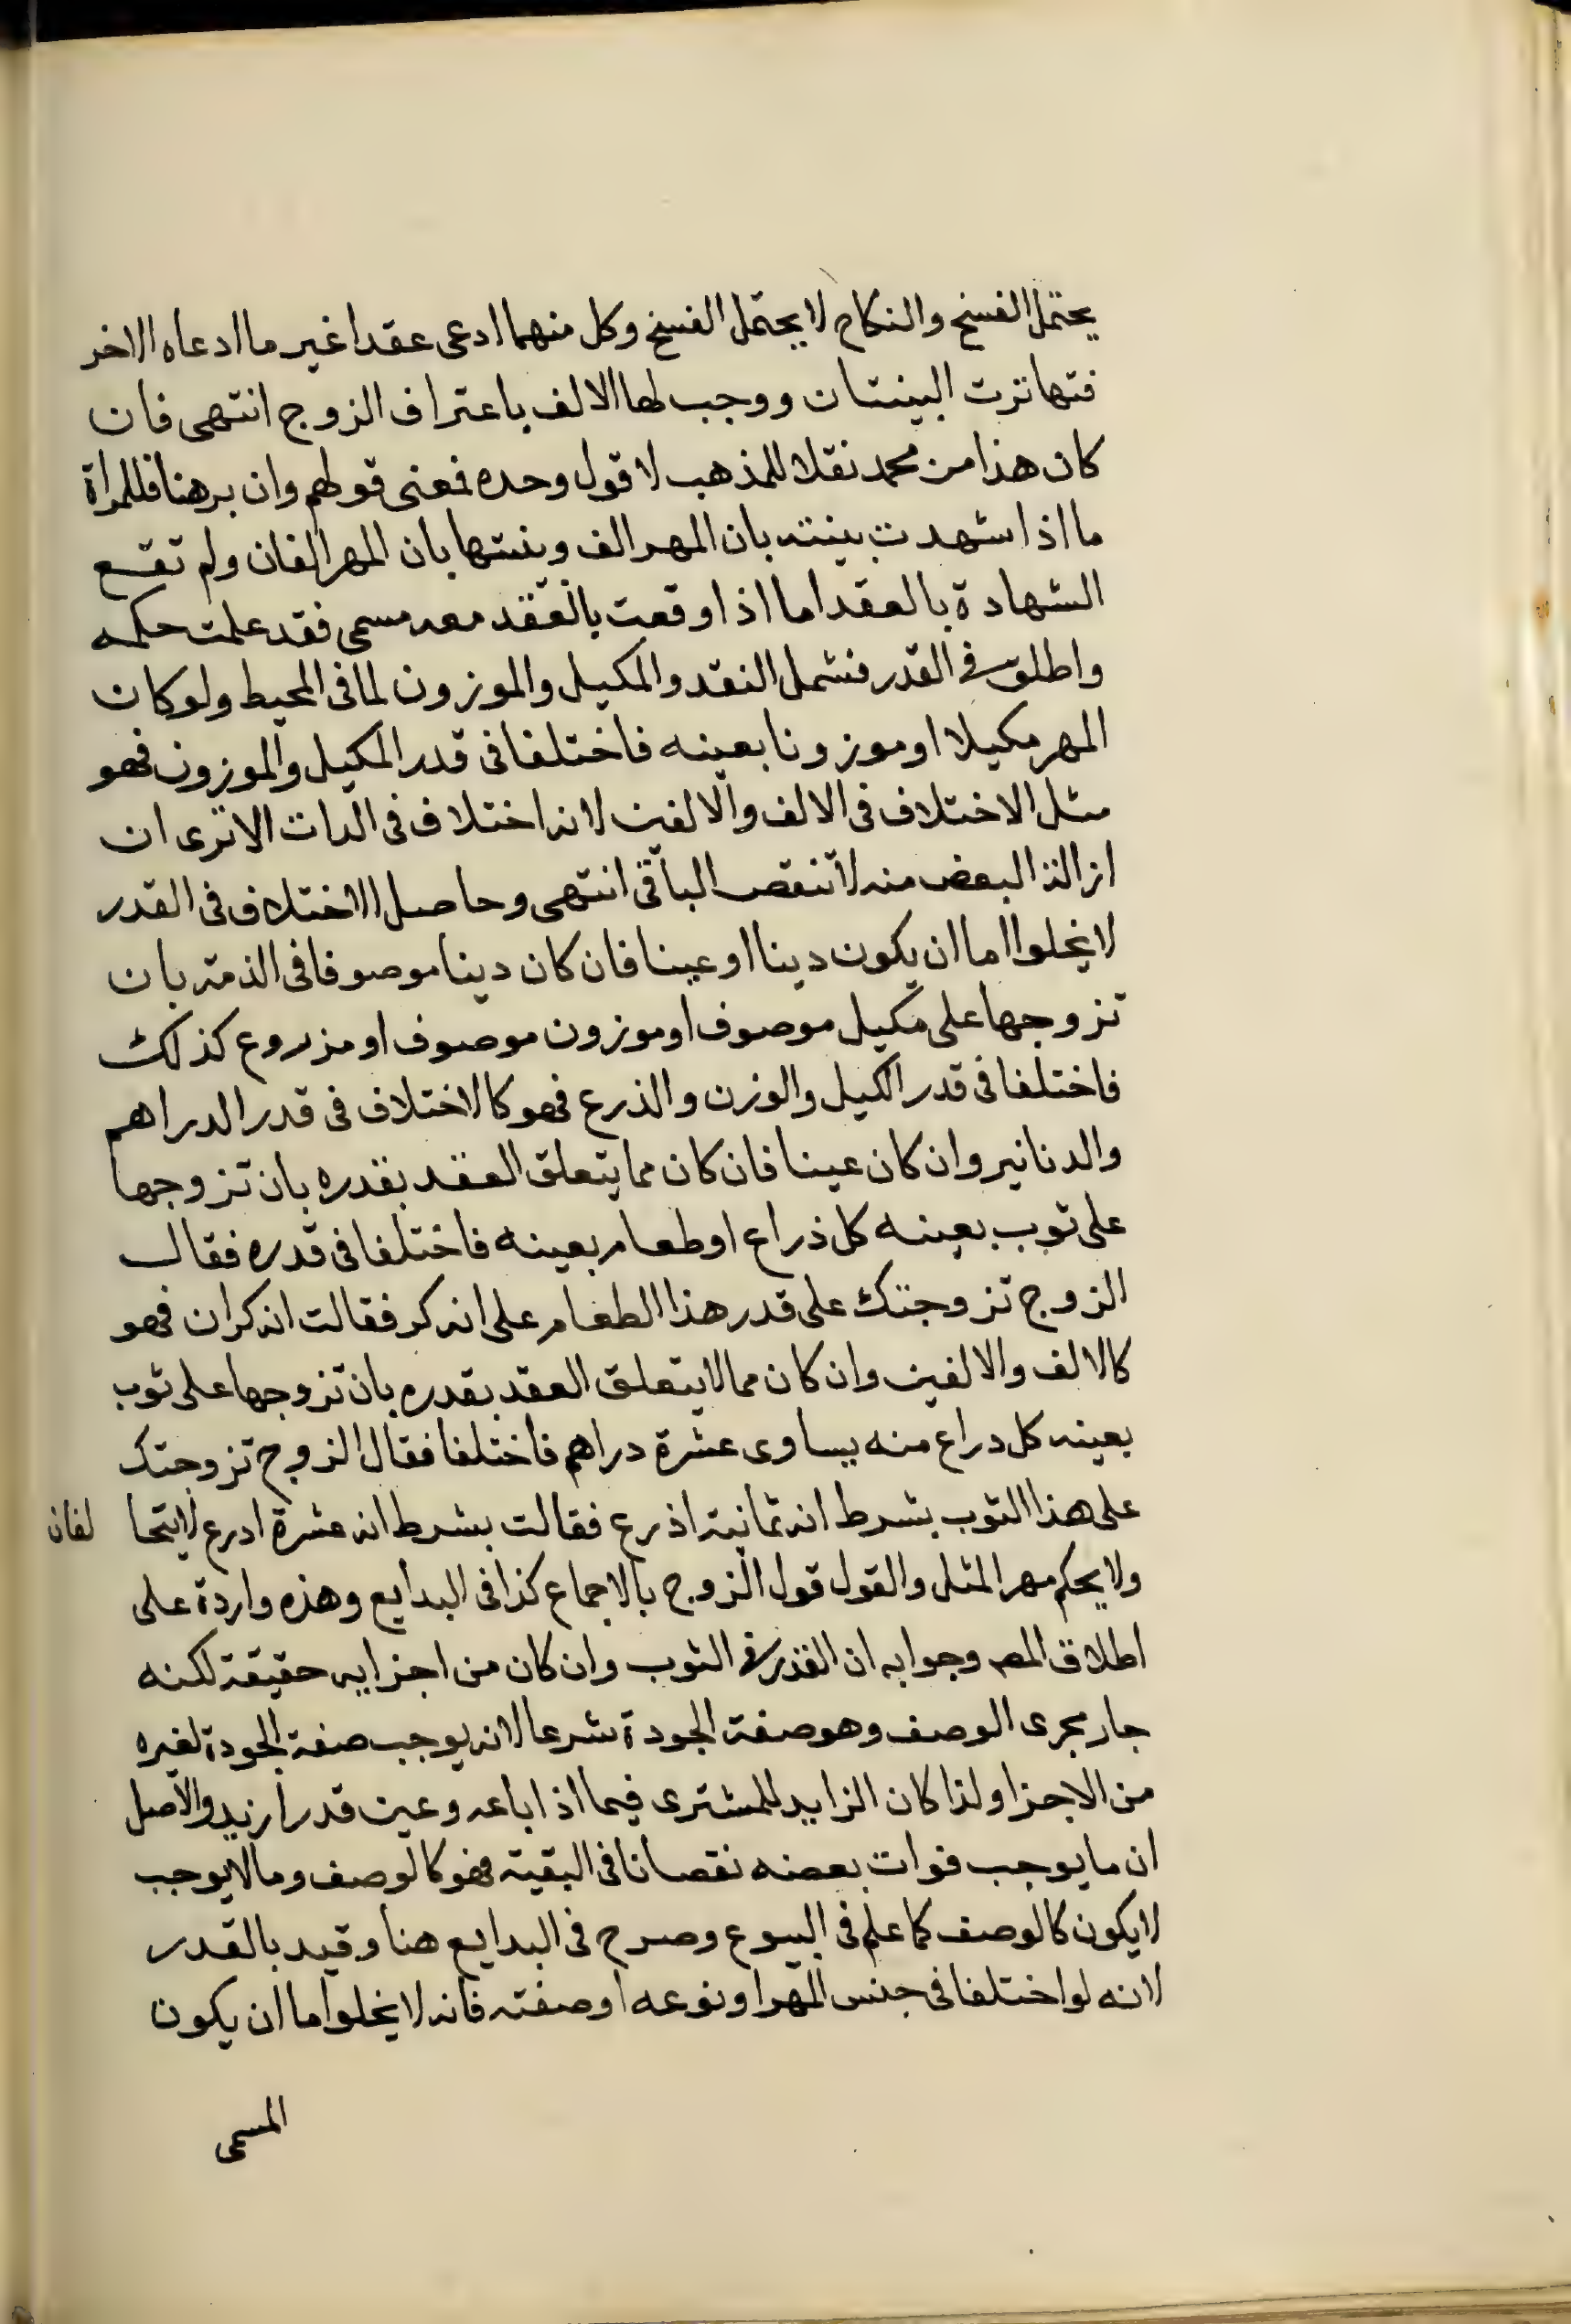 يحتمل الفسخ والنكاح لا يحتمل الفسخ وكل منهما ادعى عقدا غير ما ادعاه الاخر
فتهاترت البينتان ووجب لها الالف باعتراف الزوج انتهى فان
كان هذا من محمد نقلا للمذهب لا قول وحده فمعنى قولهم وان برهنا فللمراة
ما اذا شهدت بينته بان المهر الف وبينتها بان المهر الفان ولم تقع
الشهادة بالعقد اما اذا وقعت بالعقد معه مسمى فقد علمت حكمه
واطلق في القدر فشمل النقد والمكيل والموزون لما فى المحيط ولو كان
المهر مكيلا او موزونا بعينه فاختلفا فى قدر المكيل والموزون فهو
مثل الاختلاف فى الالف والالفين لانه اختلاف فى الذات الا ترى ان
ازالة البعض منه لا تنقص الباقى انتهى وحاصل الاختلاف فى القدر
لا يخلوا اما ان يكون دينا او عينا فان كان دينا موصوفا فى الذمة بان
تزوجها على مكيل موصوف او موزون موصوف او مذروع كذلك
فاختلفا فى قدر الكيل والوزن والذرع فهو كالاختلاف فى قدر الدراهم
والدنانير وان كان عينا فان كان مما يتعلق العقد بقدره بان تزوجها
على ثوب بعينه كل ذراع او طعام بعينه فاختلفا فى قدره فقال
الزوج تزوجتك على قدر هذا الطعام على انه كر فقالت انه كران فهو
كالالف والالفين وان كان مما لا يتعلق العقد بقدره بان تزوجها على ثوب
بعينه كل دراع منه يساوى عشرة دراهم فاختلفا فقال الزوج تزوجتك
على هذا الثوب بشرط انه ثمانية اذرع فقالت بشرط انه عشرة ادرع لا يتحا لفان
ولا يحكم مهر المثل والقول قول الزوج بالاجماع كذا فى البدايع وهذه واردة على
اطلاق المص وجوابه ان القدر في الثوب وان كان من اجزايه حقيقة لكنه
جار مجرى الوصف وهو صفة الجودة شرعا لانه يوجب صفة الجودة لغيره
من الاجزا ولذا كان الزايد للمشترى فيما اذا باعه وعين قدرا ازيد والاصل
ان ما يوجب فوات بعضه نقصانا فى البقية فهو كالوصف وما لا يوجب
لا يكون كالوصف كما علم فى البيوع وصرح فى البدايع هنا وقيد بالقدر
لانه لو اختلفا فى جنس المهر او نوعه او صفته فانه لا يخلوا ما ان يكون
المسمى